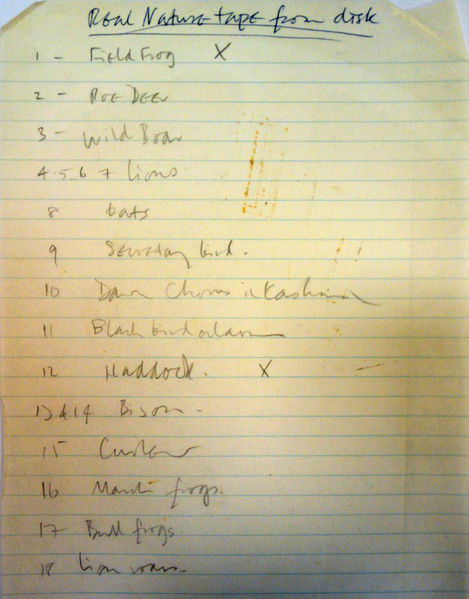 Real Nature tape from disk
1 - Field Frog X
2 - Roe Deer
3 - Wild Boar
4-5-6 7 Lions
8 bats
9 Secretary bird.
10 Dawn Chorus in Kashmir
11 Blackbird alarm
12 Haddock. X
13 & 14 Bison.
15 Curlew
16 Marsh frogs.
17 Bull frogs
18 Lion roars.